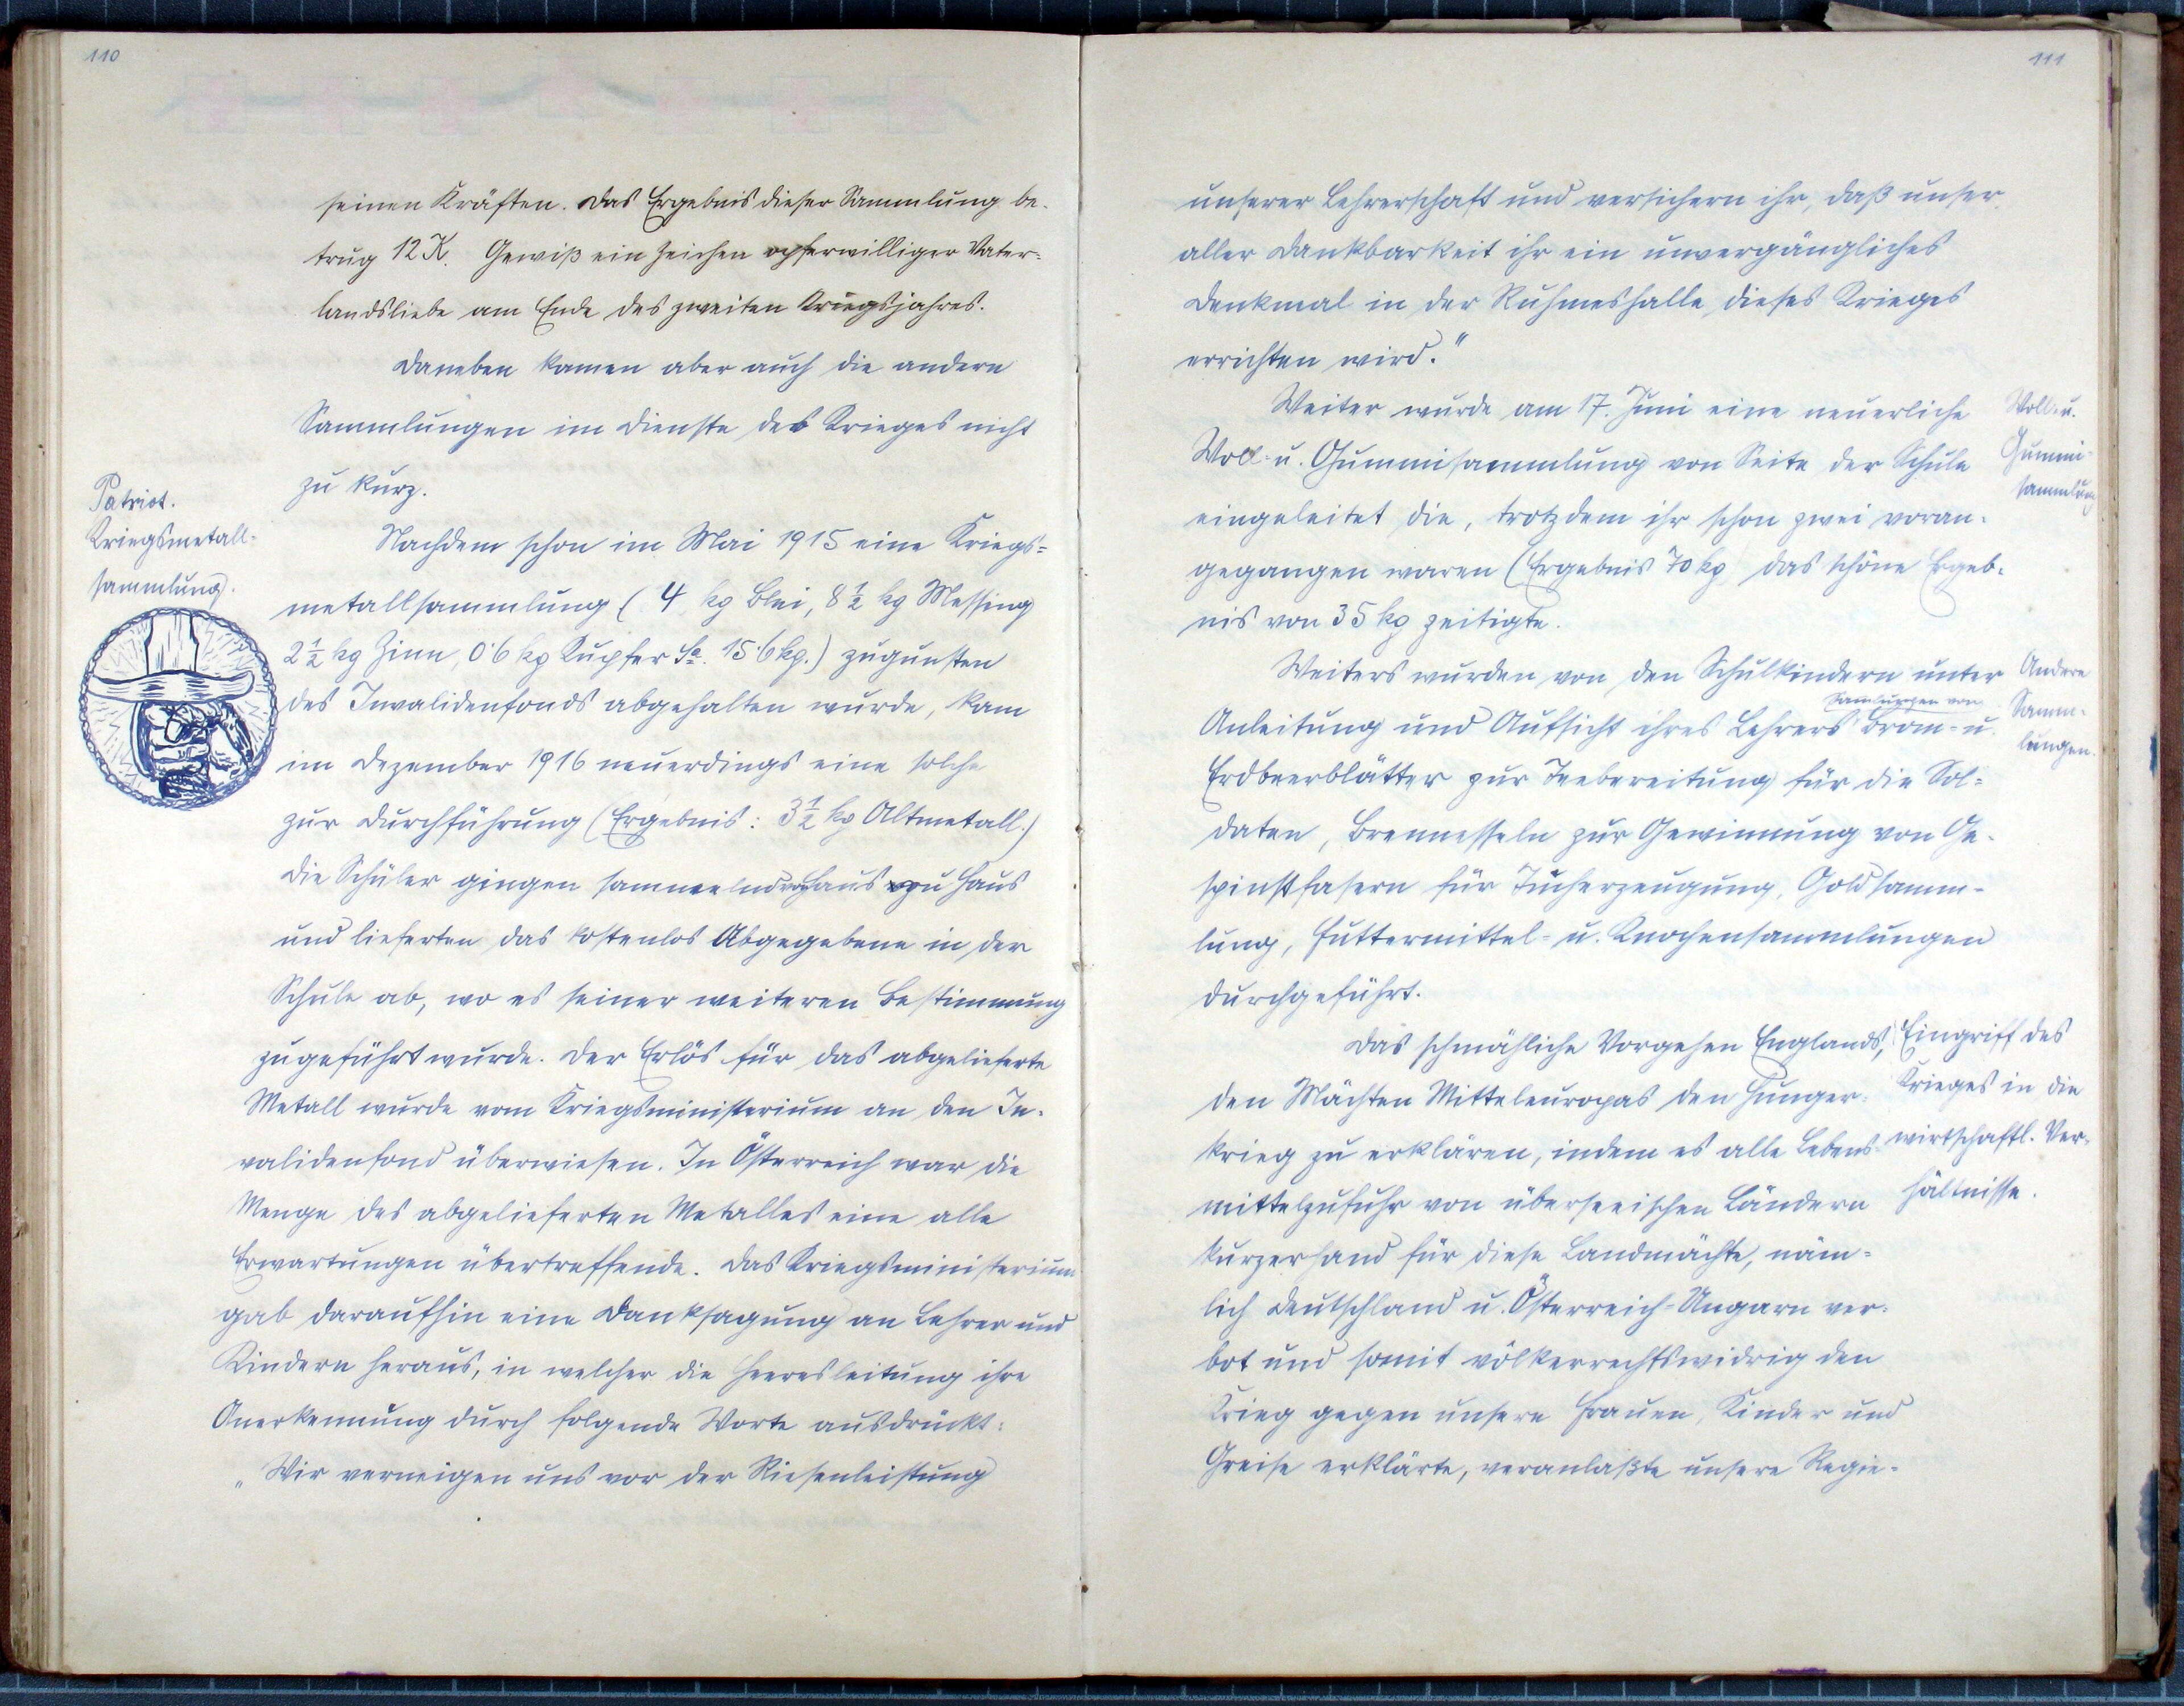 110
seinen Kräften. Das Ergebnis dieser Sammlung be-
trug 12 K. Gewiß ein Zeichen opferwilliger Vater-
landsliebe am Ende des zweiten Kriegsjahres.
Daneben kamen aber auch die andern
Sammlungen im Dienste des Krieges nicht
zu kurz.
Patriot.
Kriegsmetall-
sammlung.
Nachdem schon im Mai 1915 eine Kriegs=
metallsammlung (4 kg Blei, 8½ kg Messing
2½ kg Zinn, 0·6 kg Kupfer Sa. 15·6 kg.) zugunsten
des Invalidenfonds abgehalten wurde, kam
im Dezember 1916 neuerdings eine solche
zur Durchführung (Ergebnis: 3½ kg Altmetall.)
Die Schüler gingen sammelnd von Haus zu Haus
und lieferten das kostenlos Abgegebene in der
Schule ab, wo es seiner weiteren Bestimmung
zugeführt wurde. Der Erlös für das abgelieferte
Metall wurde vom Kriegsministerium an den In-
validenfond überwiesen. In Österreich war die
Menge des abgelieferten Metalles eine alle
Erwartungen übertreffende. Das Kriegsministerium
gab daraufhin eine Danksagung an Lehrer und
Kindern heraus, in welcher die Heeresleitung ihre
Anerkennung durch folgende Worte ausdrückt:
„Wir verneigen uns vor der Riesenleistung
111
unserer Lehrerschaft und versichern ihr, daß unser
aller Dankbarkeit ihr ein unvergängliches
Denkmal in der Ruhmeshalle dieses Krieges
errichten wird."
Weiter wurde am 17. Juni eine neuerliche
Woll- u. Gummisammlung von Seite der Schule
eingeleitet die, trotzdem ihr schon zwei voran-
gegangen waren (Ergebnis 70 kg das schöne Ergeb-
nis von 35 kg zeitigte.
Woll- u.
Gummi-
sammlung
Weiters wurden von den Schulkindern unter
Anleitung und Aufsicht ihres Lehrers Sammlungen von Brom- u.
Erdbeerblätter zur Teebereitung für die Sol=
daten, Brennesseln zur Gewinnung von Ge-
spinstfasern für Tucherzeugung, Goldsamm-
lung, Futtermittel- u. Knochensammlungen
durchgeführt.
Andere
Samm-
lungen.
Das schmähliche Vorgehen Englands,
den Mächten Mitteleuropas den Hunger-
krieg zu erklären, indem es alle Lebens-
mittelzufuhr von überseeischen Ländern
kurzerhand für diese Landmächte, näm-
lich Deutschland u. Österreich-Ungarn ver-
bot und somit völkerrechtswidrig den
Krieg gegen unsere Frauen, Kinder und
Greise erklärte, veranlaßte unsere Regie-
Eingriff des
Krieges in die
wirtschaftl. Ver-
hältnisse.